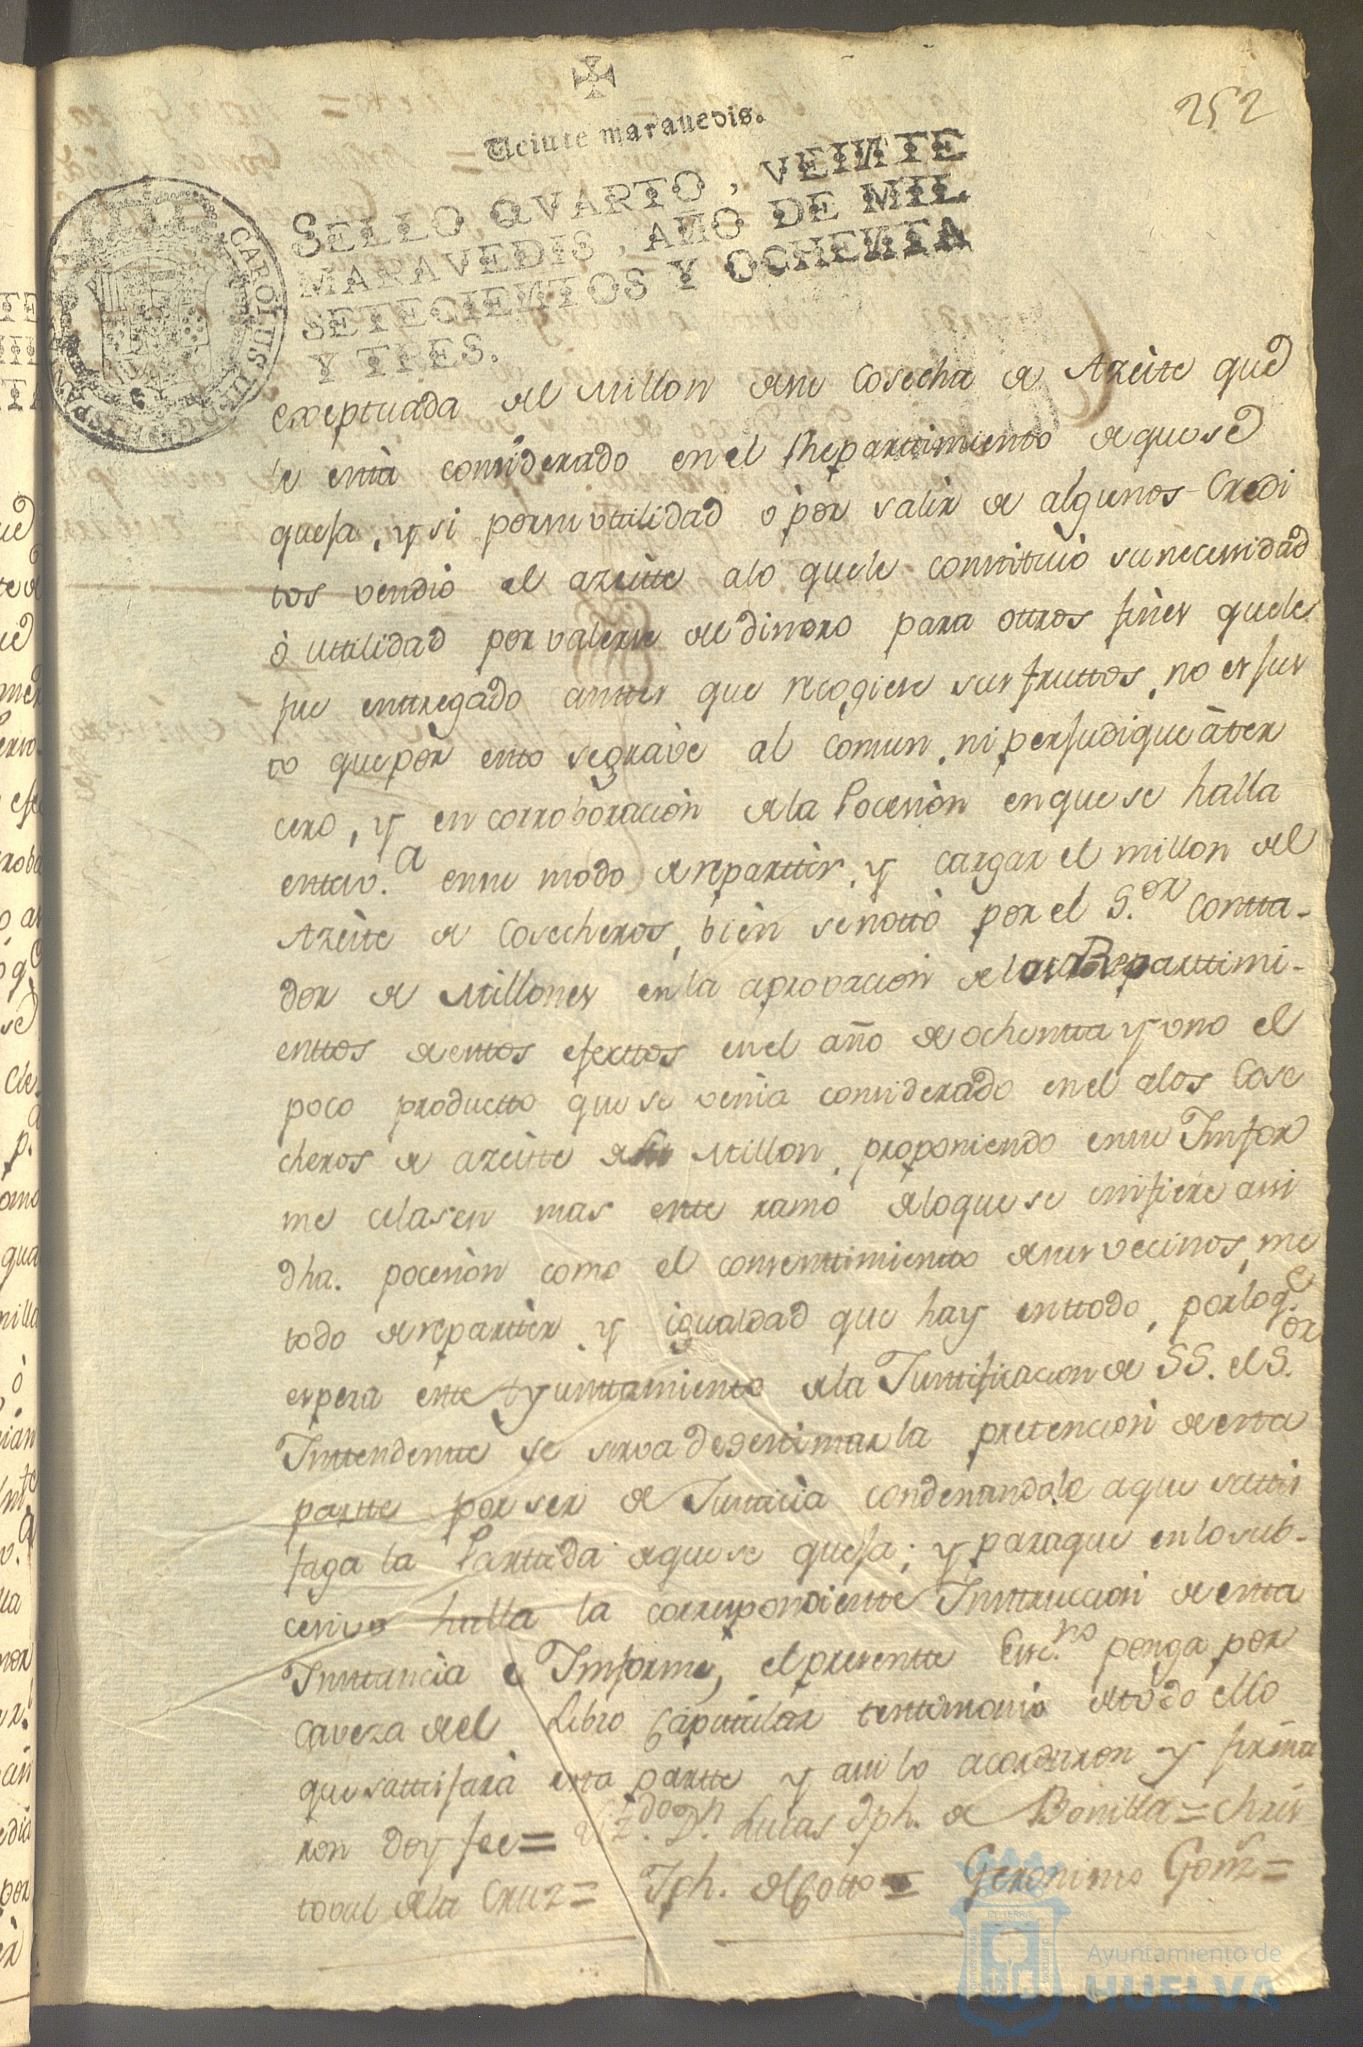 252
Veinte maravedis.
SELLO QVARTO, VEINTE
MARAVEDIS, AÑO DE MIL
SETECIENTOS Y OCHENTA
Y TRES.
CAROLUS III D G HISPAN
exeptuada del Millon de su Cosecha de Azeite que
le està considerado en el Repartimiento de que se
quesa, y si por su utilidad ò por salir de algunos Credi
tos vendiò el azeite a lo que le constituiò su necesidad
ò utilidad por valerse de dinero para otros fines que le
fue entregado antes que recogiese sus fruttos, no es jus
to que por esto se grave al comun, ni perjudique à ter
cero, y en corroboracion de la Pocesiòn en que se halla
esta v.ª en su modo de repartir, y cargar el millon del
Azeite de Cosecheros, bièn se notò por el S.or Contta-
dor de Millones en la aprovacion de los Reparttimi-
enttos de estos efecttos en el año de ochenta y uno el
poco productto que se venia considerado en el a los Cose
cheros de azeitte de su Millon, proponiendo en su Infor
me celasen mas este ramo de lo que se infiere asi
dha. pocesiòn como el consenttimiento de sus vecinos, me
todo de repartir, y igualdad que hay en ttodo, por lo q.e
espera este Ayunttamiento de la Justificacion de SS. el S.or
Inttendente se sirva desestimar la pretencion de esta
partte por ser de Justicia condenandole a que sattis
faga la Parttida de que se quesa; y para que en lo sub-
cesivo halla la correspondiente Insttruccion de esta
Insttancia e Informe, el presentte Esc.no ponga por
caveza del Libro Capitular testimonio de todo ello
que sattisfarà esta partte y asi lo acordaron y firma
ron doy fee = Liz.do D.n Lucas Jph. de Bonilla = Chris
toval de la Cruz = Jph. del Cotto = Geronimo Gomz =
Ayuntamiento de
HUELVA